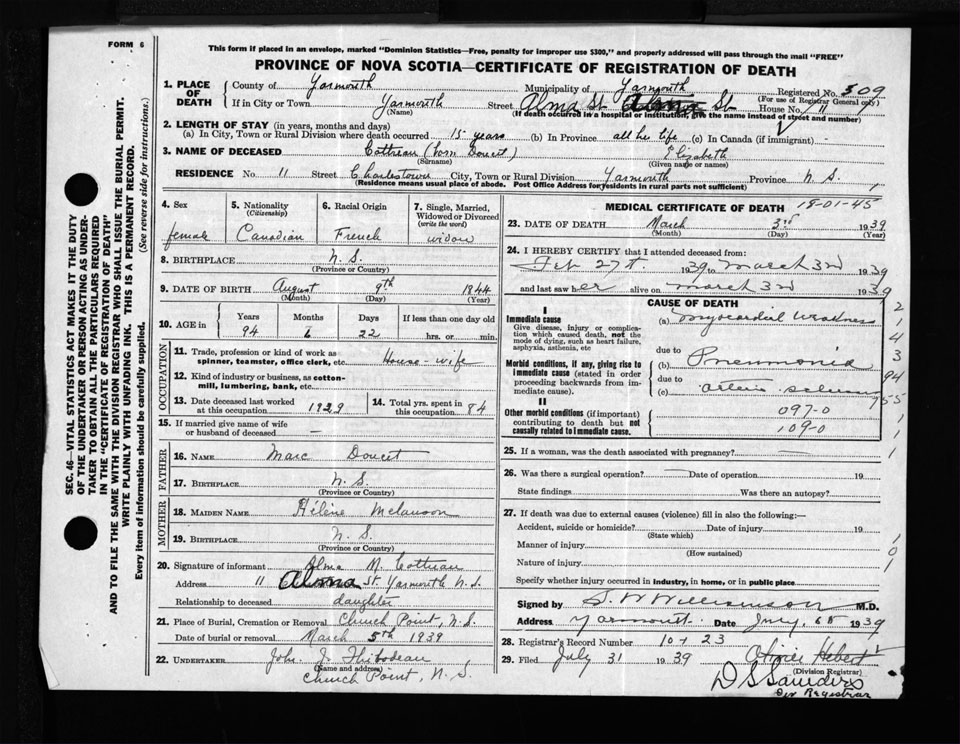 FORM 6
This form if placed in an envelope, marked "Dominion Statistics—Free, penalty for improper use $300," and properly addressed will pass through the mail "FREE"
PROVINCE OF NOVA SCOTIA—CERTIFICATE OF REGISTRATION OF DEATH
SEC. 46—VITAL STATISTICS ACT MAKES IT THE DUTY
OF THE UNDERTAKER OR PERSON ACTING AS UNDER-
TAKER TO OBTAIN ALL THE PARTICULARS REQUIRED
IN THE "CERTIFICATE OF REGISTRATION OF DEATH"
AND TO FILE THE SAME WITH THE DIVISION REGISTRAR WHO SHALL ISSUE THE BURIAL PERMIT.
WRITE PLAINLY WITH UNFADING INK. THIS IS A PERMANENT RECORD.
Every item of information should be carefully supplied. (See reverse side for instructions.)
1. PLACE OF DEATH
County of Yarmouth Municipality of Yarmouth Registered No. 509
(For use of Registrar General only)
If in City or Town Yarmouth Street Alma St. Alma St House No. 11
(Name) (If death occurred in a hospital or institution, give the name instead of street and number)
2. LENGTH OF STAY (in years, months and days)
(a) In City, Town or Rural Division where death occurred 15 years (b) In Province all her life (c) In Canada (if immigrant) -
3. NAME OF DECEASED Cottreau (born Doucet) Elizabeth
(Surname) (Given name or names)
RESIDENCE No. 11 Street Charlestown City, Town or Rural Division Yarmouth Province N.S.
(Residence means usual place of abode. Post Office Address for residents in rural parts not sufficient)
4. Sex
female
5. Nationality
(Citizenship)
Canadian
6. Racial Origin
French
7. Single, Married, Widowed or Divorced
(write the word)
widow
8. BIRTHPLACE N.S.
(Province or Country)
9. DATE OF BIRTH August 9th 1844
(Month) (Day) (Year)
10. AGE in
Years Months Days If less than one day old
94 6 22 hrs. or min.
OCCUPATION
11. Trade, profession or kind of work as spinner, teamster, office clerk, etc. House-wife
12. Kind of industry or business, as cotton-mill, lumbering, bank, etc.
13. Date deceased last worked at this occupation 1929
14. Total yrs. spent in this occupation 84
15. If married give name of wife or husband of deceased —
FATHER
16. NAME Marc Doucet
17. BIRTHPLACE N.S.
(Province or Country)
MOTHER
18. MAIDEN NAME Hélène Melanson
19. BIRTHPLACE N.S.
(Province or Country)
20. Signature of informant Alma M. Cottreau
Address 11 Alma St. Yarmouth N.S.
Relationship to deceased daughter
21. Place of Burial, Cremation or Removal Church Point, N.S.
Date of burial or removal March 5th 1939
22. UNDERTAKER John J. Thibodeau
(Name and address)
Church Point, N.S.
MEDICAL CERTIFICATE OF DEATH 18-01-45
23. DATE OF DEATH March 3rd 1939
(Month) (Day) (Year)
24. I HEREBY CERTIFY that I attended deceased from:
Feb 27t. 1939 to March 3rd 1939
and last saw her alive on March 3rd 1939
CAUSE OF DEATH
I
Immediate cause
Give disease, injury or complication which caused death, not the mode of dying, such as heart failure, asphyxia, asthenia, etc
(a) Myocardial Weakness
due to
Morbid conditions, if any, giving rise to immediate cause (stated in order proceeding backwards from immediate cause).
(b) Pneumonia
due to
(c)
II
Other morbid conditions (if important) contributing to death but not causally related to immediate cause.
097-0
109-0
2
1
4
3
94
755
1
1
1
25. If a woman, was the death associated with pregnancy? —
26. Was there a surgical operation? — Date of operation 19
State findings Was there an autopsy?
27. If death was due to external causes (violence) fill in also the following:—
Accident, suicide or homicide? Date of injury 19
(State which)
Manner of injury
(How sustained)
Nature of injury
1
0
1
Specify whether injury occurred in industry, in home, or in public place
Signed by S. W Williamson M.D.
Address Yarmouth. Date July, 6th 1939
28. Registrar's Record Number 10+23
29. Filed July 31 1939 Hebert
(Division Registrar)
D S Saunders
Registrar